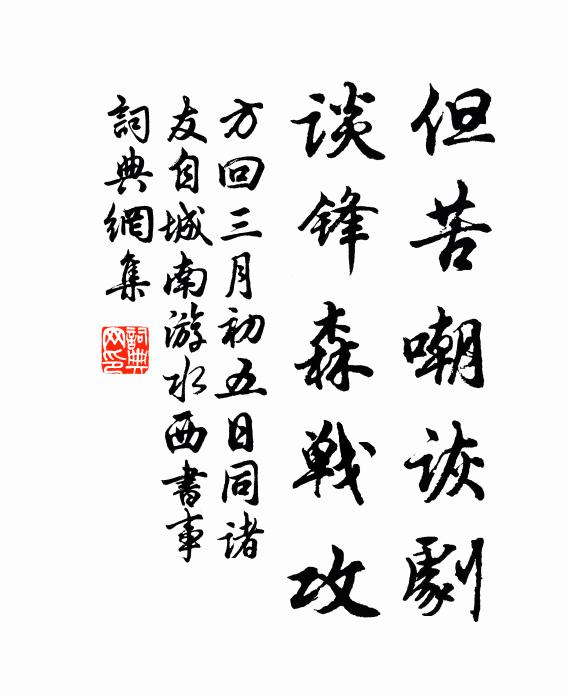 但苦嘲詼劇
談鋒森戰攻
方回三月初五日同諸
友自城南游水西書事
詞典網集
詞典
网印